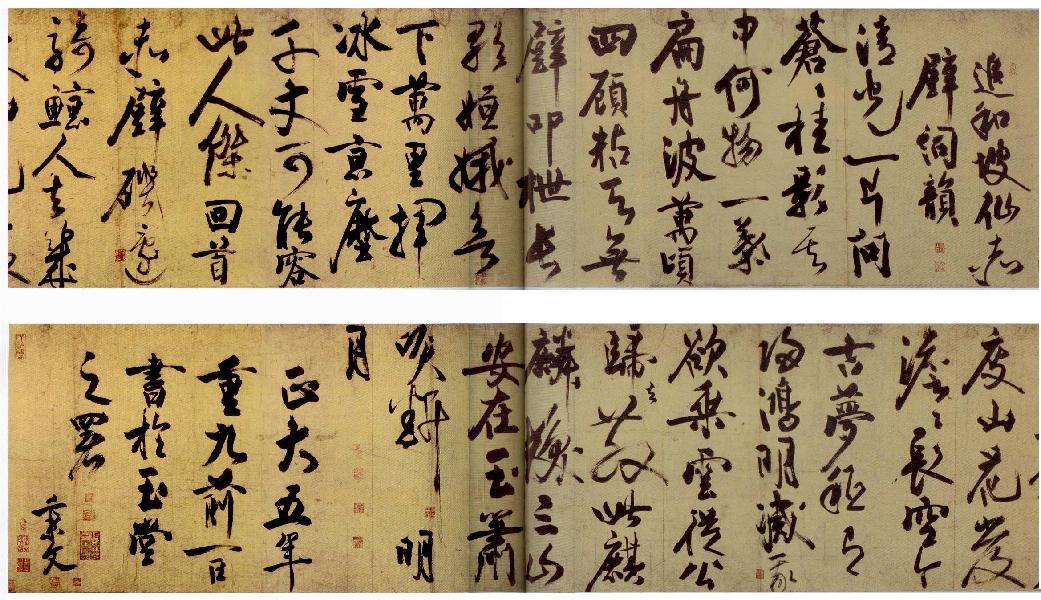 追和坡仙赤
壁詞韻
清光一片問
蒼〻桂影其
中何物一葉
扁舟波萬頃
四顧粘天無
壁叩枻長
歌嫦娥欲
下萬里揮
冰雪京塵
千丈可能容
此人傑回首
赤壁磯邊
騎鯨人去幾
度山花發
澹〻長空今
古夢秖有
歸鴻明滅我
欲乘雲從公
歸去散此麒
麟髮三山
安在玉簫
吹斷明
月
正大五年
重九前一日
書於玉堂
之署
秉文